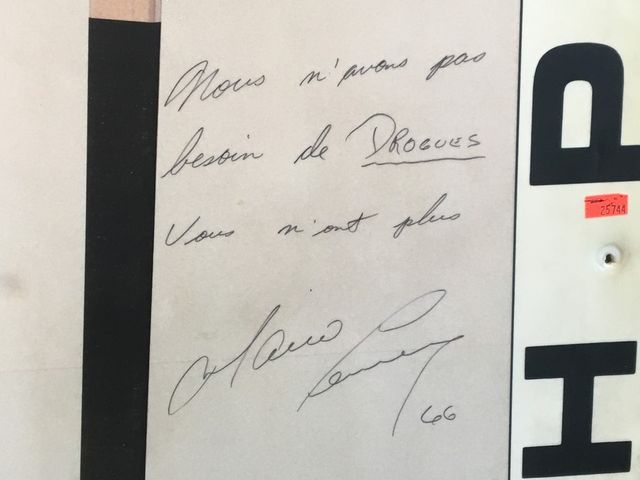 Nous n'avons pas
besoin de DROGUES
Vous n'ont plus
Mario Lemieux
66
H P
25744